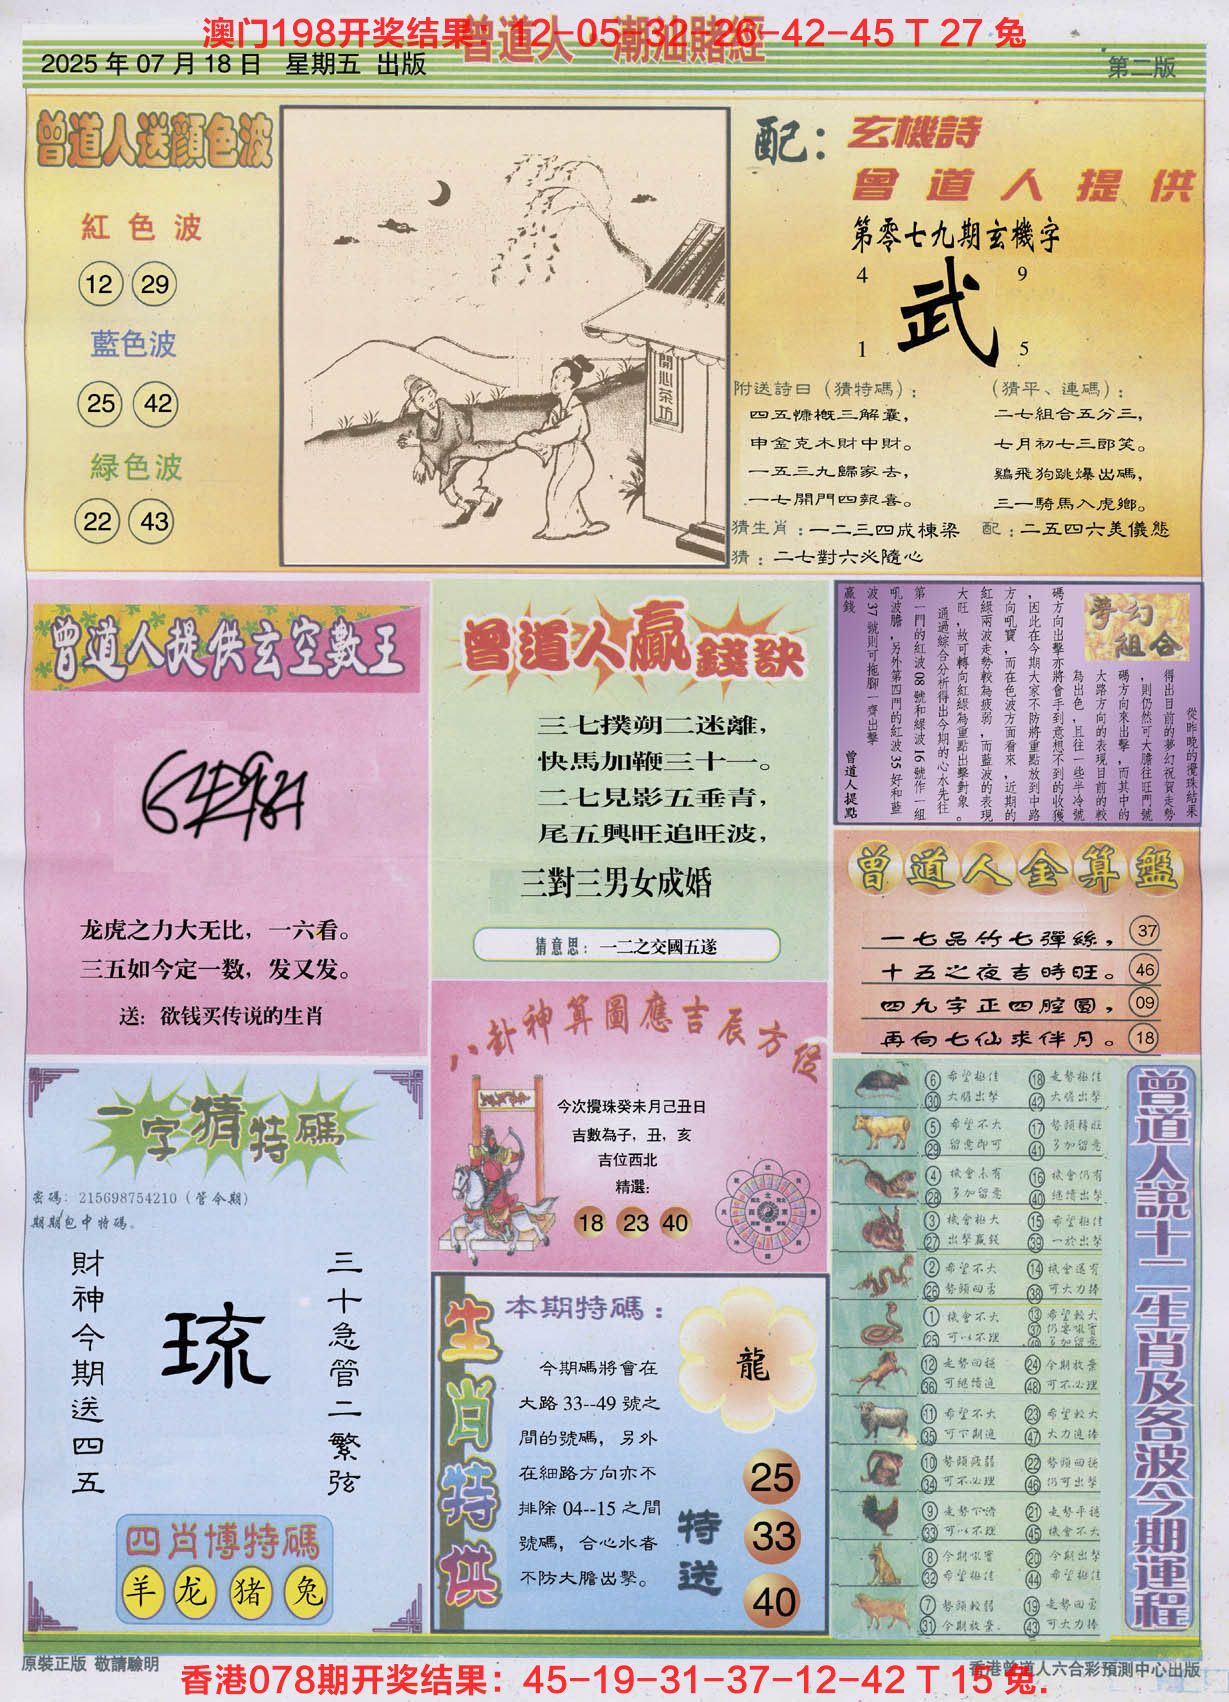 澳门198开奖结果：12-05-32-26-42-45 T 27 兔
曾道人 潮汕賭經
2025 年 07 月 18 日 星期五 出版
第二版
曾道人送顏色波
紅色波
12 29
藍色波
25 42
緑色波
22 43
開心茶坊
配：玄機詩
曾道人提供
第零七九期玄機字
4 9
武
1 5
附送詩曰（猜特碼）：
四五慷概三解囊，
申金克木財中財。
一五三九歸家去，
一七開門四報喜。
（猜平、連碼）：
二七組合五分三，
七月初七三郎笑。
鷄飛狗跳爆出碼，
三一騎馬入虎鄉。
猜生肖：一二三四成棟梁 配：二五四六美儀態
猜：二七對六必隨心
曾道人提供玄空數王
龙虎之力大无比，一六看。
三五如今定一数，发又发。
送：欲钱买传说的生肖
曾道人贏錢訣
三七撲朔二迷離，
快馬加鞭三十一。
二七見影五垂青，
尾五興旺追旺波，
三對三男女成婚
猜意思：一二之交國五遂
夢幻組合
從昨晚的攪珠結果
得出目前的夢幻祝賀走勢
，則仍然可大膽往旺門號
碼方向來出擊，而其中的
大路方向的表現目前的較
為出色，且往一些半冷號
碼方向出擊亦將會手到意想不到的收獲
，因此在今期大家不防將重點放到中路
方向吼寶，而在色波方面看來，近期的
紅綠兩波走勢較為疲弱，而藍波的表現
大旺，故可轉向紅綠為重點出擊對象。
通過綜合分析得出今期的心水先往
第一門的紅波08號和緑波16號作一組
吼波膽，另外第四門的紅波35好和藍
波37號則可拖腳一齊出擊
贏錢
曾道人提點
曾道人金算盤
一七品竹七彈絲，37
十五之夜吉時旺。46
四九字正四腔圓，09
再向七仙求伴月。18
八卦神算圖應吉辰方位
今次攪珠癸未月己丑日
吉數為子，丑，亥
吉位西北
精選：
18 23 40
一字猜特碼
密碼：215698754210（管今期）
期期包中特碼。
財神今期送四五
琉
三十急管二繁弦
四肖博特碼
羊 龙 猪 兔
生肖特供
本期特碼：
龍
今期碼將會在
大路 33--49 號之
間的號碼，另外
在細路方向亦不
排除 04--15 之間
號碼，合心水者
不防大膽出擊。
特送
25
33
40
曾道人説十二生肖及各波今期運程
6 希望極佳 18 走勢極佳
30 大膽出擊 42 大膽出擊
5 希望不大 17 勢頭轉旺
29 留意即可 41 多加留意
4 機會未有 16 機會仍有
28 多加留意 40 继續出擊
3 機會極大 15 希望極佳
27 出擊贏錢 39 一於出擊
2 希望不大 14 機會還有
26 勢頭回落 38 可大力捧
1 機會不大 13 希望較大
25 可以不理
12 走勢回穩 24 今期放棄
36 可繼續追 48 可不必理
11 希望不大 23 希望較大
35 可下期追 47 大力追捧
10 勢頭疲弱 22 勢頭回穩
34 可不必理 46 仍可出擊
9 走勢下滑 21 走勢平穩
33 可以不理 45 機會不大
8 今期吼實 20 今期出擊
32 希望極佳 44 希望極佳
7 勢頭較弱 19 走勢回落
31 今期放棄 43 可大力捧
原裝正版 敬請驗明
香港曾道人六合彩預測中心出版
香港078期开奖结果：45-19-31-37-12-42 T 15 兔.